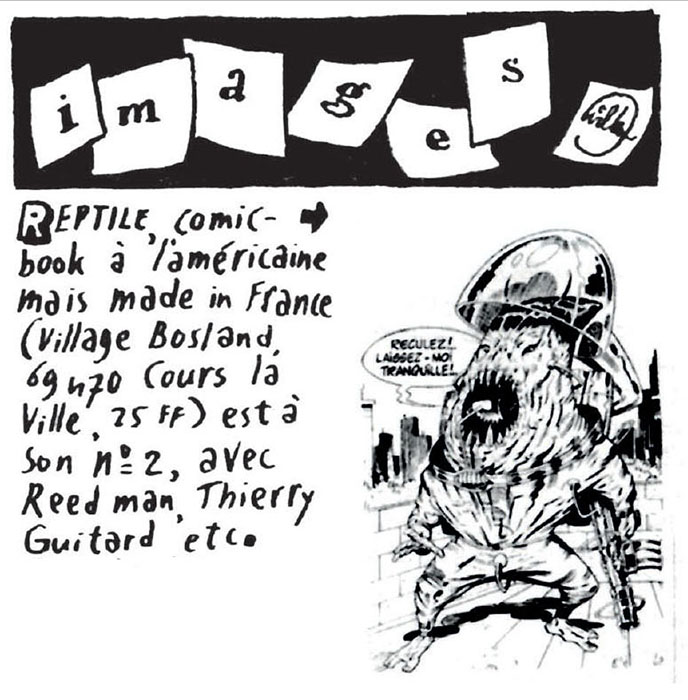 images
Willem
REPTILE, comic- ➔
book à l'américaine
mais made in France
(Village Bosland,
69470 Cours la
Ville, 25 FF) est à
son nº 2, avec
Reed man, Thierry
Guitard etc.
RECULEZ!
LAISSEZ-MOI
TRANQUILLE!